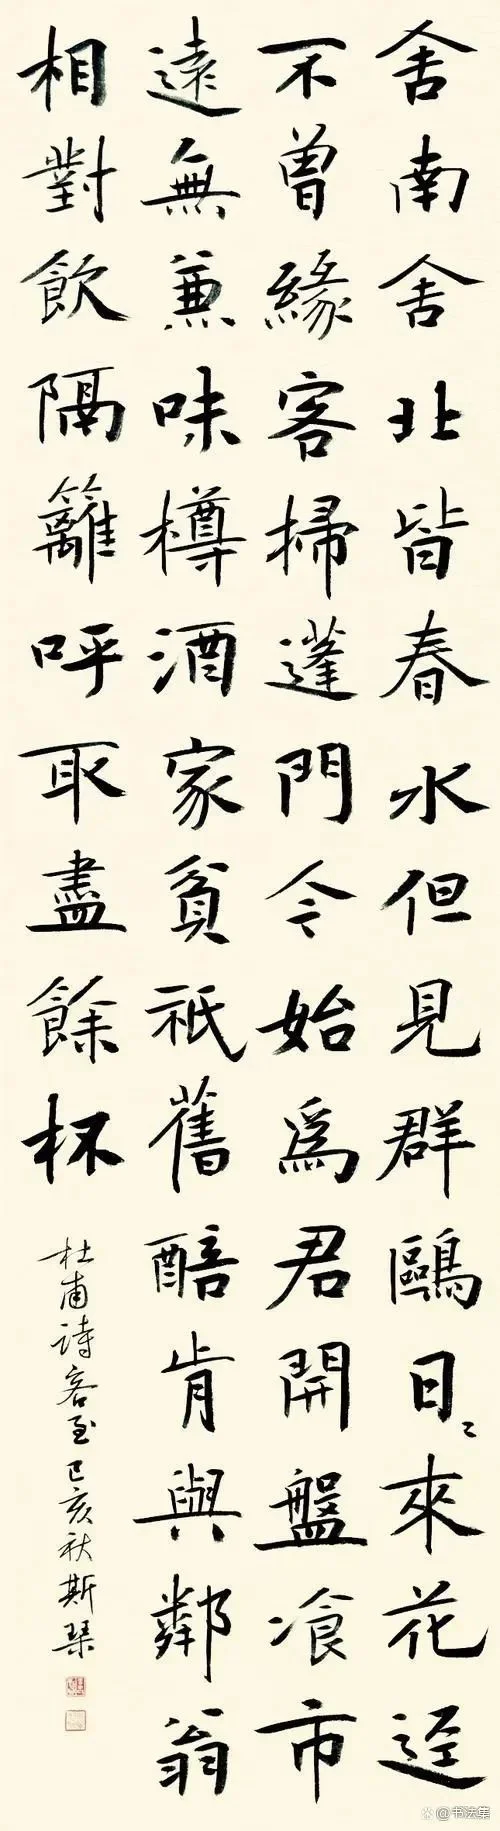 舍南舍北皆春水但見群鷗日〻來花逕
不曾緣客掃蓬門今始爲君開盤飡市
遠無兼味樽酒家貧祇舊醅肯與鄰翁
相對飲隔籬呼取盡餘杯
杜甫詩客至己亥秋斯琴
@书法集